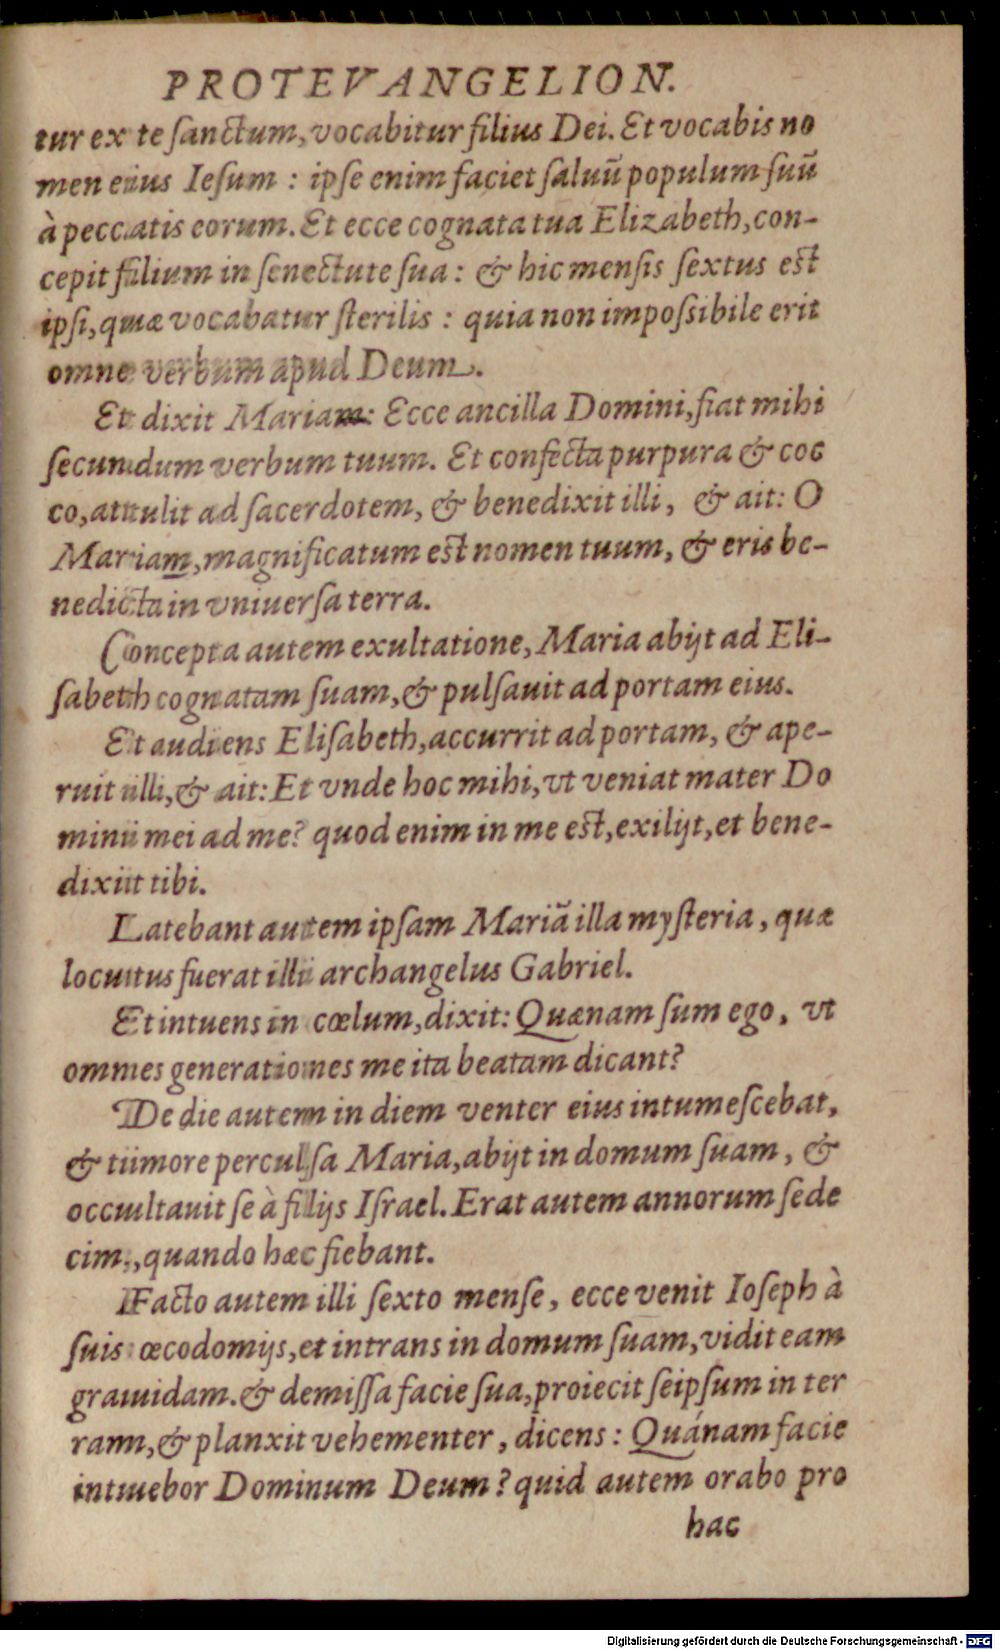 PROTEVANGELION.
tur ex te ſanctum, vocabitur filius Dei. Et vocabis no
men eius Ieſum : ipſe enim faciet ſaluũ populum ſuũ
à peccatis eorum. Et ecce cognata tua Elizabeth, con-
cepit filium in ſenectute ſua : & hic menſis ſextus est
ipſi, quæ vocabatur ſterilis : quia non impoſsibile erit
omne verbum apud Deum.
Et dixit Mariam: Ecce ancilla Domini, fiat mihi
ſecundum verbum tuum. Et confecta purpura & coc
co, attulit ad ſacerdotem, & benedixit illi, & ait: O
Mariam, magnificatum est nomen tuum, & eris be-
nedicta in vniuerſa terra.
Concepta autem exultatione, Maria abijt ad Eli-
ſabeth cognatam ſuam, & pulſauit ad portam eius.
Et audiens Eliſabeth, accurrit ad portam, & ape-
ruit illi, & ait: Et vnde hoc mihi, vt veniat mater Do
mini mei ad me? quod enim in me est, exilijt, et bene-
dixit tibi.
Latebant autem ipſam Mariã illa myſteria, quæ
locutus fuerat illi archangelus Gabriel.
Et intuens in cœlum, dixit: Quænam ſum ego, vt
omnes generationes me ita beatam dicant?
De die autem in diem venter eius intumeſcebat,
& timore perculſa Maria, abijt in domum ſuam, &
occultauit ſe à filijs Iſrael. Erat autem annorum ſede
cim, quando hæc fiebant.
Facto autem illi ſexto menſe, ecce venit Ioſeph à
ſuis œcodomijs, et intrans in domum ſuam, vidit eam
grauidam. & demiſſa facie ſua, proiecit ſeipſum in ter
ram, & planxit vehementer, dicens : Quánam facie
intuebor Dominum Deum? quid autem orabo pro
hac
Digitalisierung gefördert durch die Deutsche Forschungsgemeinschaft - DFG